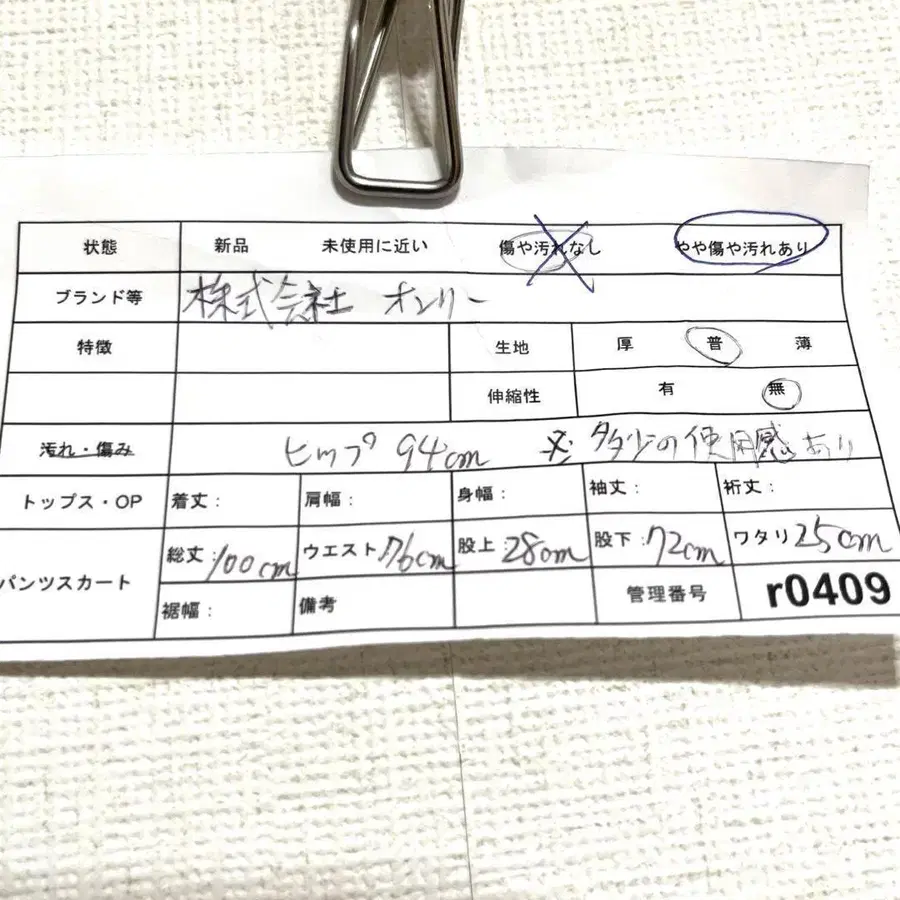 状態 新品 未使用に近い 傷や汚れなし やや傷や汚れあり
ブランド等 株式会社 オンリー
特徴 生地 厚 普 薄
伸縮性 有 無
汚れ・傷み ヒップ 94cm ※多少の使用感あり
トップス・OP 着丈: 肩幅: 身幅: 袖丈: 裄丈:
パンツスカート 総丈:100cm ウエスト76cm 股上:28cm 股下:72cm ワタリ25cm
裾幅: 備考 管理番号 r0409